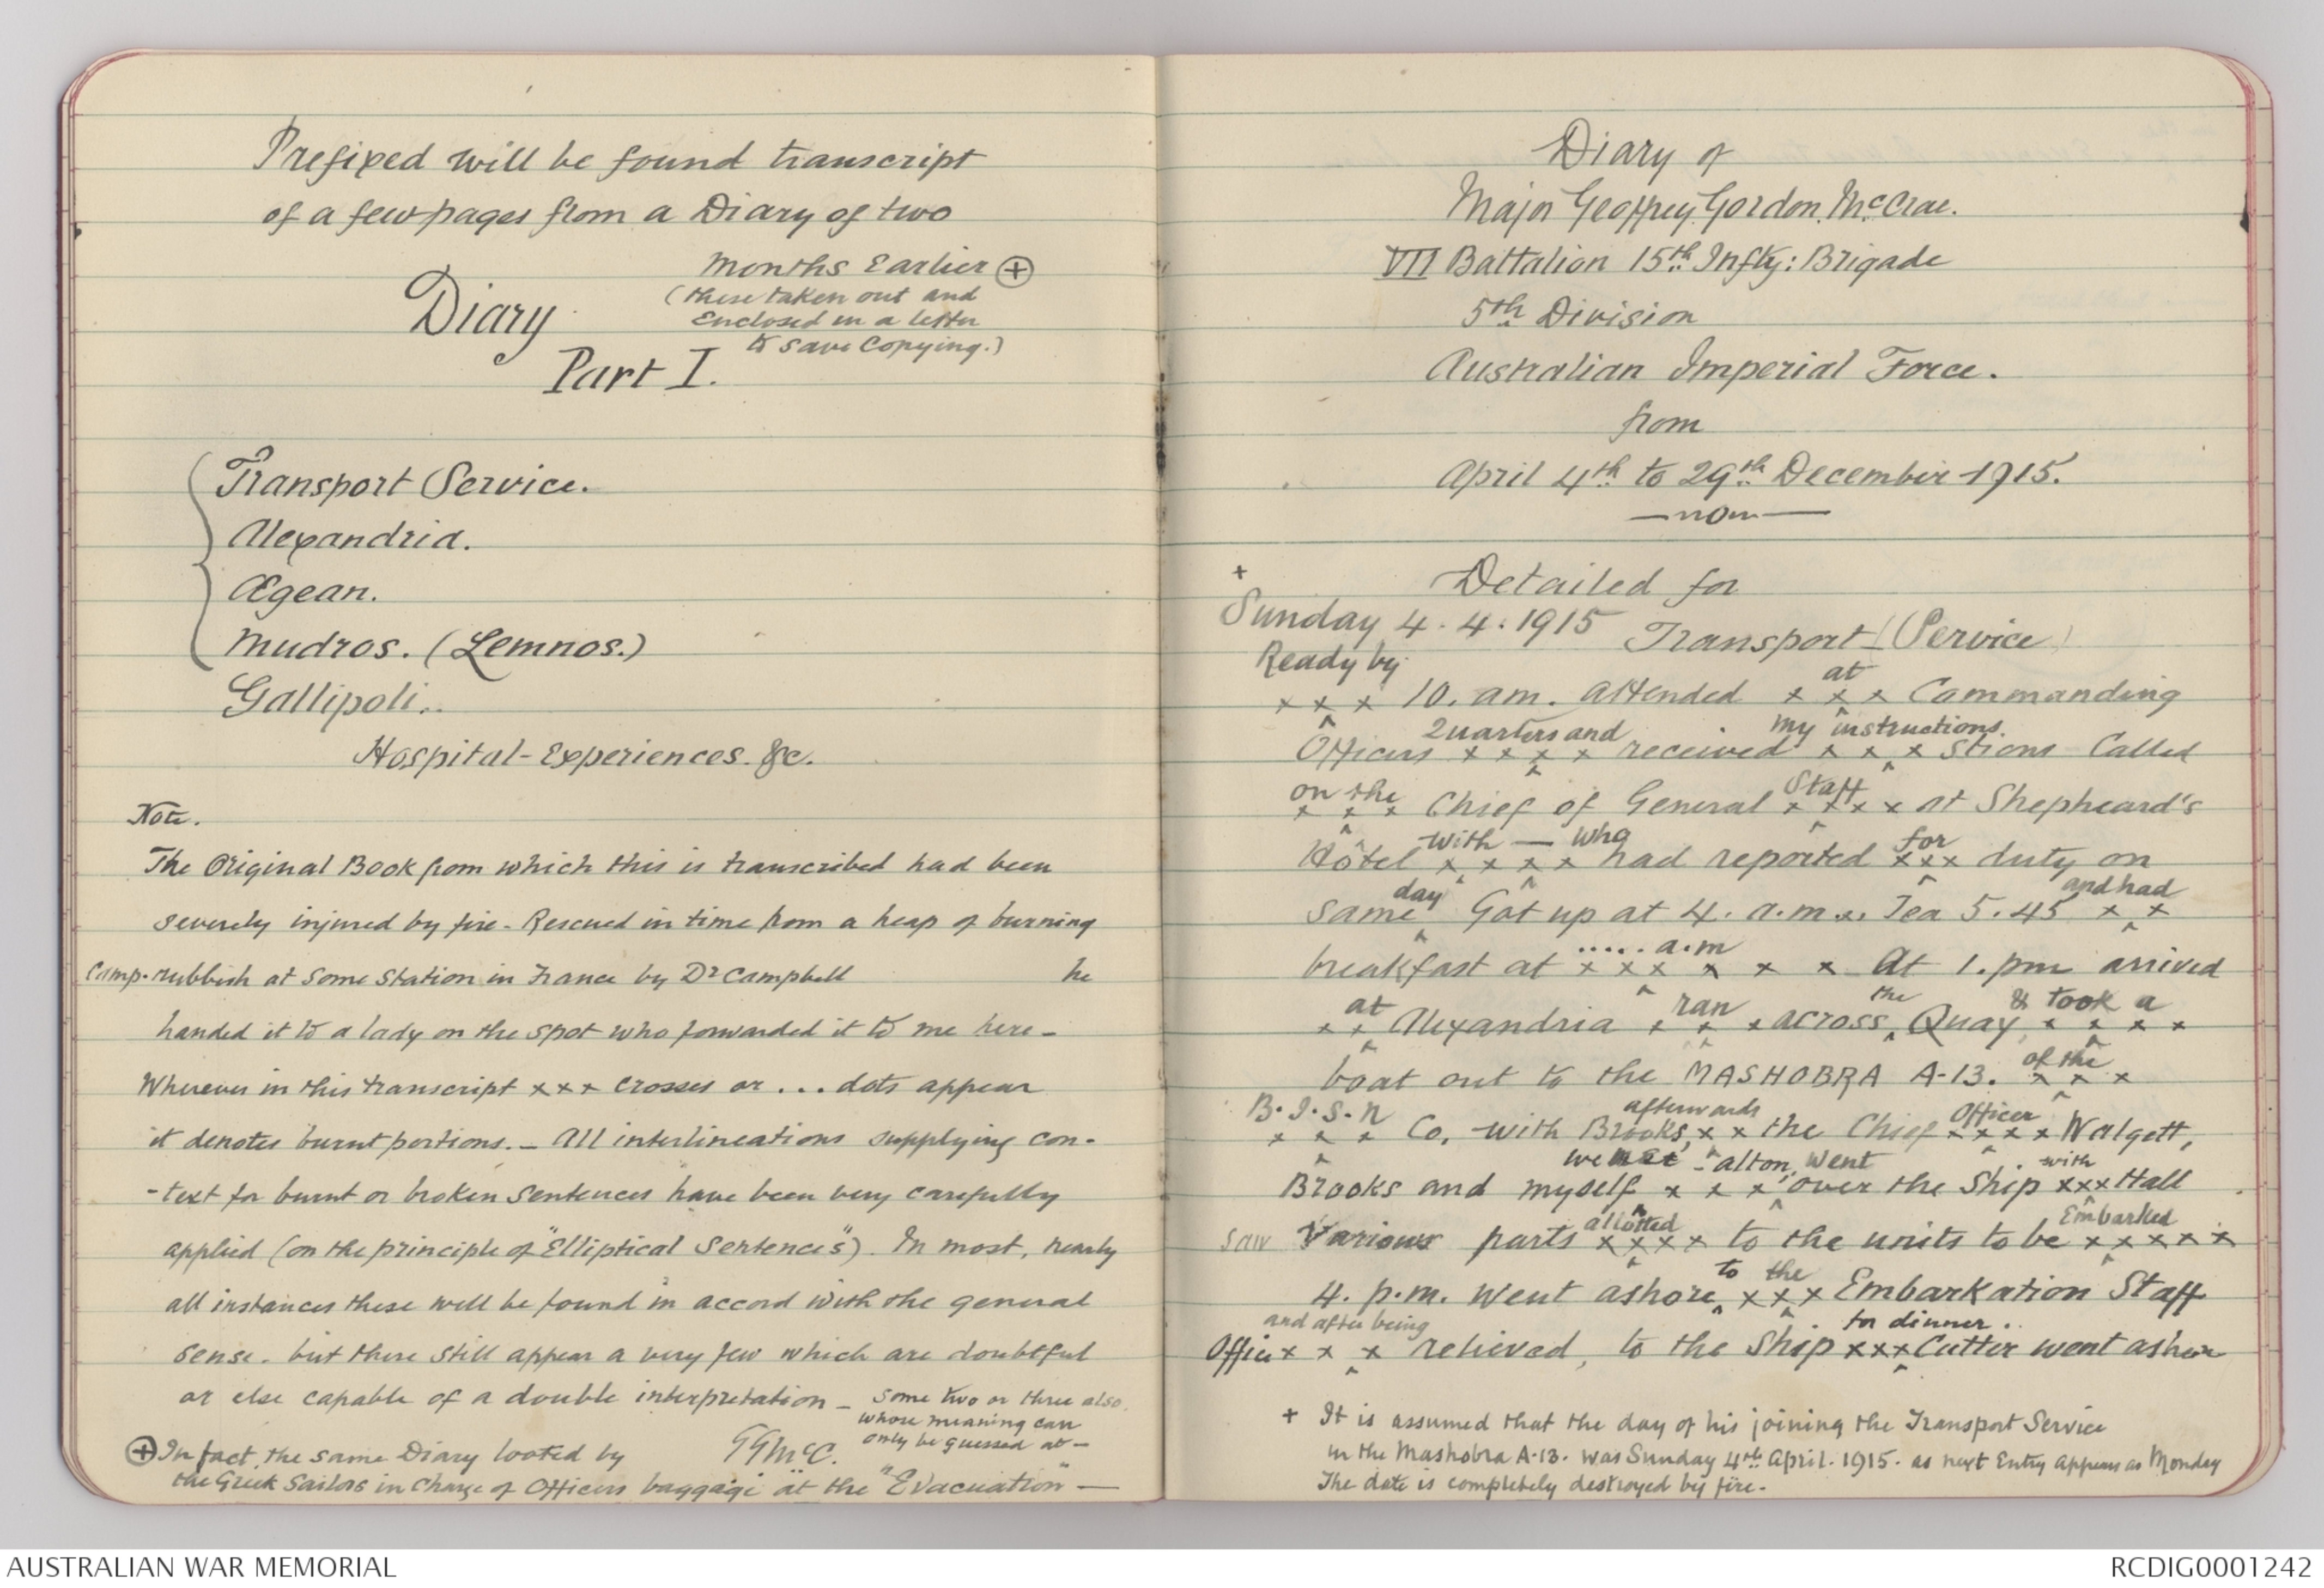 Prefixed will be found transcript
of a few pages from a Diary of two
months Earlier ⊕
(these taken out and
Enclosed in a letter
to save Copying.)
Diary
Part I.
Transport Service.
Alexandria.
Ægean.
Mudros. (Lemnos.)
Gallipoli..
Hospital-Experiences. &c.
Note.
The Original Book from which this is transcribed had been
severely injured by fire - Rescued in time from a heap of burning
Camp-rubbish at some station in France by Dr Campbell he
handed it to a lady on the spot who forwarded it to me here -
Wherever in this transcript xxx crosses or ... dots appear
it denotes burnt portions. - All interlineations supplying con-
-text for burnt or broken sentences have been very carefully
applied (on the principle of "Elliptical Sentences"). In most, nearly
all instances these will be found in accord with the general
sense. but there still appear a very few which are doubtful
or else capable of a double interpretation - some two or three also,
whose meaning can
only be guessed at -
GGMcC.
⊕ In fact, the same Diary looted by
the Greek Sailors in charge of Officers baggage at the "Evacuation" -
Diary of
Major Geoffrey Gordon McCrae.
VII Battalion 15th Infty: Brigade
5th Division
Australian Imperial Force.
from
April 4th to 29th December 1915.
+ Detailed for
Sunday 4.4.1915 Transport (Service)
Ready by at
x x x 10. am. attended x x x Commanding
Quarters and my instructions.
Officers x x x x received x x x stions Called
on the Staff
x x x Chief of General x x x x at Shepheard's
with — who for
Hôtel x x x x had reported xxx duty on
day and had
same Got up at 4. a.m.. Tea 5.45 x x
..... a.m
breakfast at x x x x x x At 1. pm arrived
at ran the & took a
x x Alexandria x x x across Quay x x x x
of the
boat out to the MASHOBRA A-13. x x x
B.I.S.N afterwards Officer
x x x Co. with Brooks, x x the Chief x x x x Walgett,
we met - alton, went with
Brooks and myself x x x over the Ship xxx Hall
allotted Embarked
saw Various parts x x x x to the units to be x x x x x
to the
4. p.m. went ashore x x x Embarkation Staff
and after being for dinner..
Office x x x relieved, to the Ship xxx Cutter went ashore
+ It is assumed that the day of his joining the Transport Service
in the Mashobra A-13. was Sunday 4th April. 1915. as next Entry appears as Monday
The date is completely destroyed by fire.
AUSTRALIAN WAR MEMORIAL
RCDIG0001242